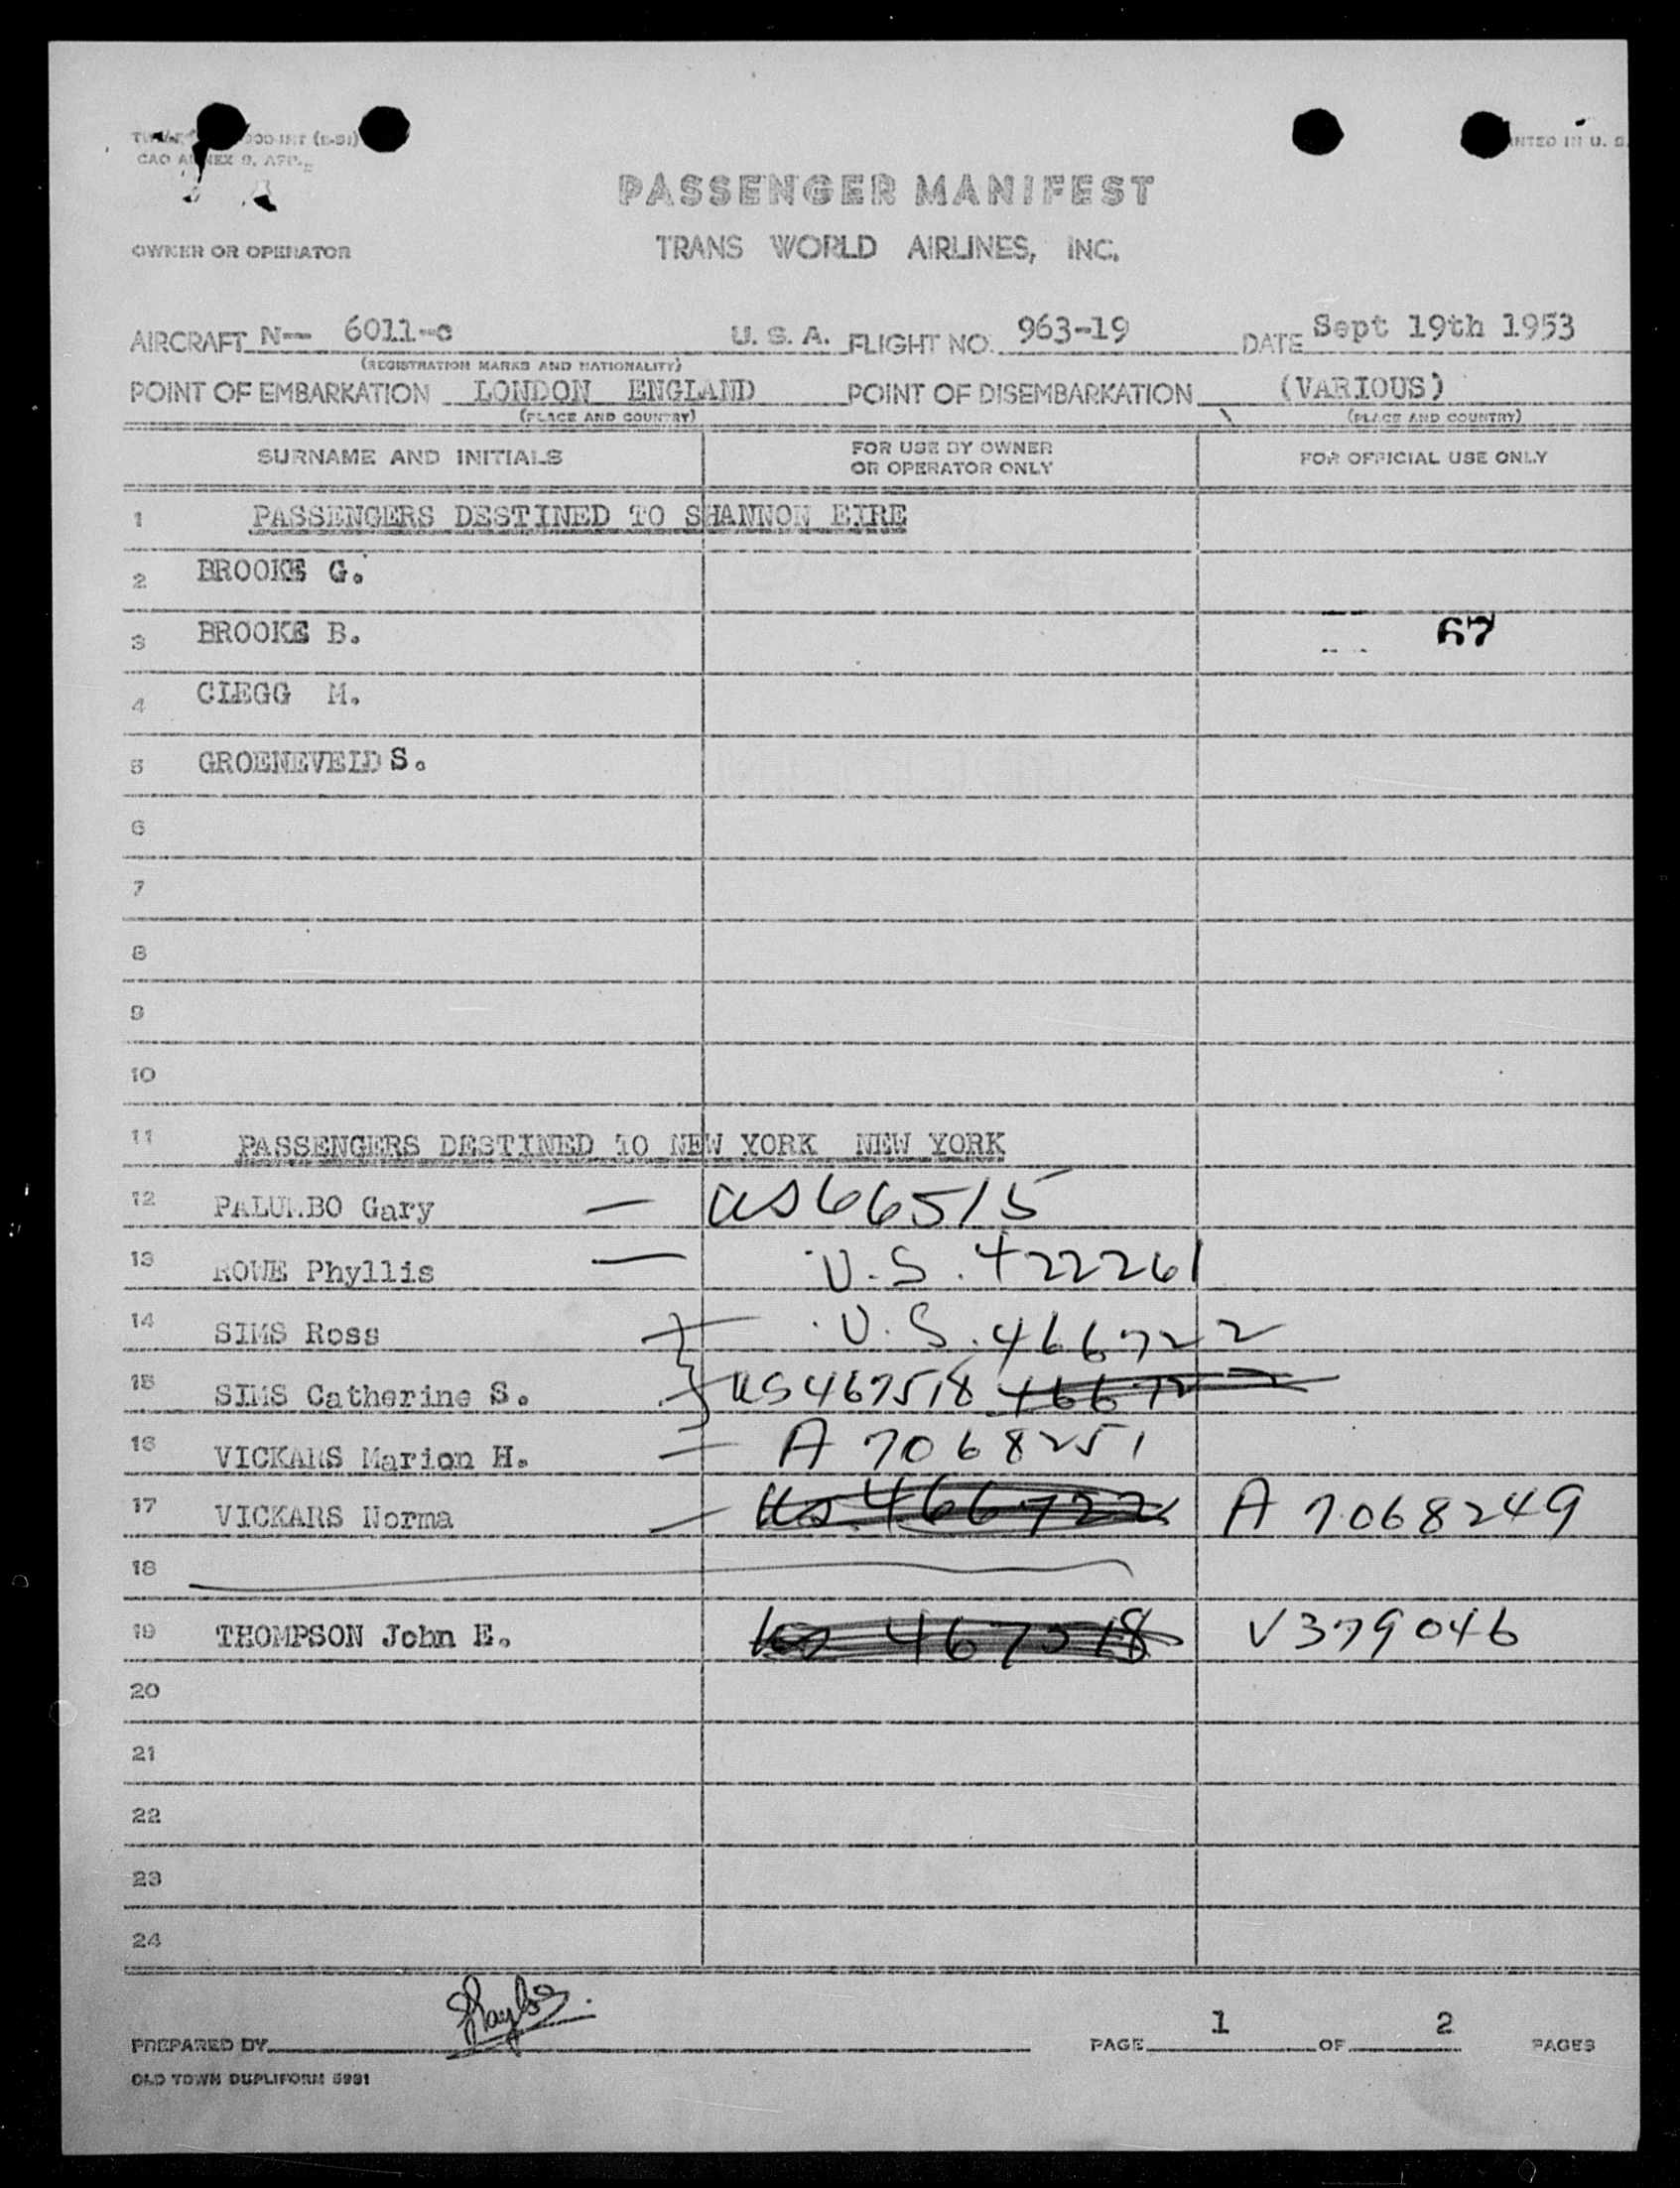 PRINTED IN U. S.
PASSENGER MANIFEST
OWNER OR OPERATOR TRANS WORLD AIRLINES, INC.
AIRCRAFT N-- 6011-c U. S. A. FLIGHT NO. 963-19 DATE Sept 19th 1953
(REGISTRATION MARKS AND NATIONALITY)
POINT OF EMBARKATION LONDON ENGLAND POINT OF DISEMBARKATION (VARIOUS)
(PLACE AND COUNTRY) (PLACE AND COUNTRY)
SURNAME AND INITIALS FOR USE BY OWNER OR OPERATOR ONLY FOR OFFICIAL USE ONLY
1 PASSENGERS DESTINED TO SHANNON EIRE
2 BROOKE G.
3 BROOKE B. 67
4 CLEGG M.
5 GROENEVELD S.
6
7
8
9
10
11 PASSENGERS DESTINED TO NEW YORK NEW YORK
12 PALUMBO Gary — US66515
13 ROWE Phyllis — U.S. 422261
14 SIMS Ross U.S. 466722
15 SIMS Catherine S. US467518 466722
16 VICKARS Marion H. A 7068251
17 VICKARS Norma — US 466722 A 7068249
18
19 THOMPSON John E. US 467518 V379046
20
21
22
23
24
PREPARED BY PAGE 1 OF 2 PAGES
OLD TOWN DUPLIFORM 5931